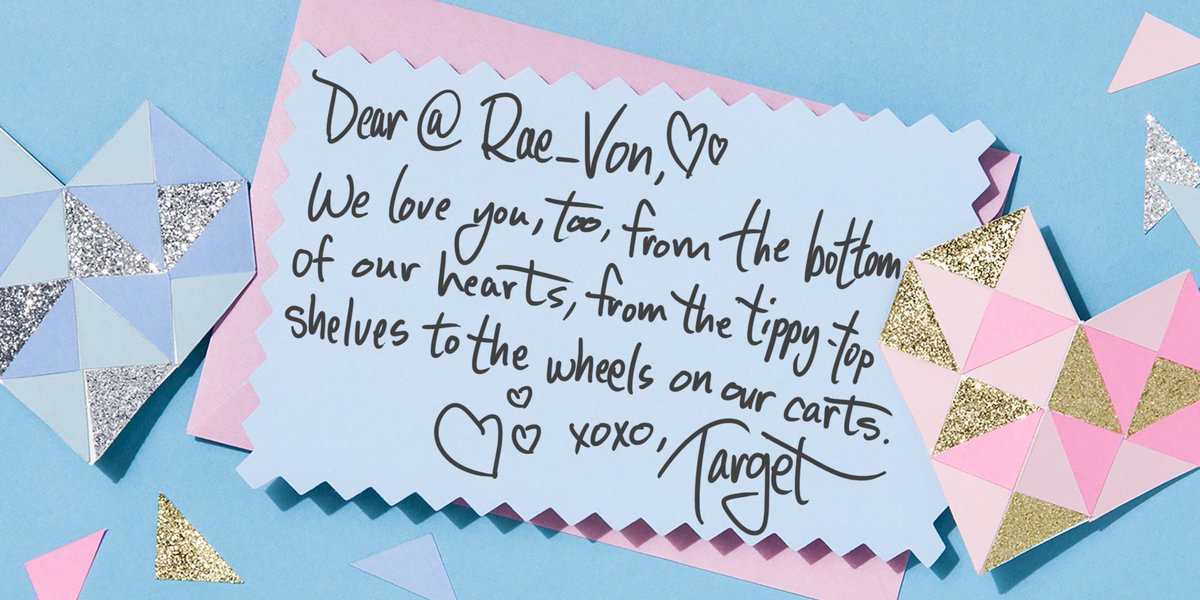 Dear @Rae_Von,
We love you, too, from the bottom
of our hearts, from the tippy-top
shelves to the wheels on our carts.
xoxo, Target